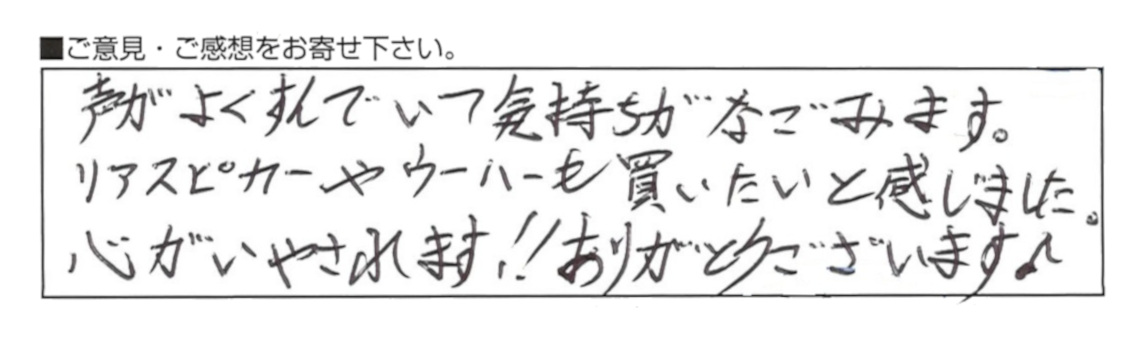 ■ご意見・ご感想をお寄せ下さい。
声がよくすんでいて気持ちがなごみます。
リアスピカーやウーハーも買いたいと感じました。
心がいやされます!!ありがとうございます♪